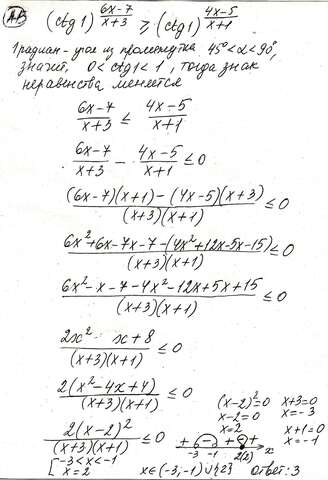 АВ (ctg1)^((6x-7)/(x+3)) ≥ (ctg1)^((4x-5)/(x+1))
1 радиан - угол из промежутка 45°<α<90°,
значит, 0<ctg1<1, тогда знак
неравенства меняется
(6x-7)/(x+3) ≤ (4x-5)/(x+1)
(6x-7)/(x+3) - (4x-5)/(x+1) ≤ 0
((6x-7)(x+1) - (4x-5)(x+3))/((x+3)(x+1)) ≤ 0
(6x²+6x-7x-7-(4x²+12x-5x-15))/((x+3)(x+1)) ≤ 0
(6x²-x-7-4x²-12x+5x+15)/((x+3)(x+1)) ≤ 0
(2x² x+8)/((x+3)(x+1)) ≤ 0
2(x²-4x+4)/((x+3)(x+1)) ≤ 0
2(x-2)²/((x+3)(x+1)) ≤ 0
(x-2)²=0 x+3=0
x-2=0 x=-3
x=2 x+1=0
x=-1
+ - + +
-3 -1 2(2) x
[ -3<x<-1
x=2
x∈(-3,-1)∪{2} ответ: 3